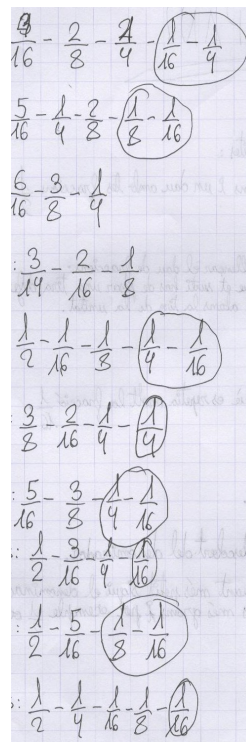 4/16 - 2/8 - 2/4 - 1/16 - 1/4
5/16 - 1/4 - 2/8 - 1/8 - 1/16
6/16 - 3/8 - 1/4
: 3/14 - 2/16 - 1/8
1/2 - 1/16 - 1/8 - 1/4 - 1/16
: 3/8 - 2/16 - 1/4 - 1/4
: 5/16 - 3/8 - 1/4 - 1/16
: 1/2 - 3/16 - 1/4 - 1/16
: 1/2 - 5/16 - 1/8 - 1/16
: 1/2 - 1/4 - 1/16 - 1/8 - 1/16